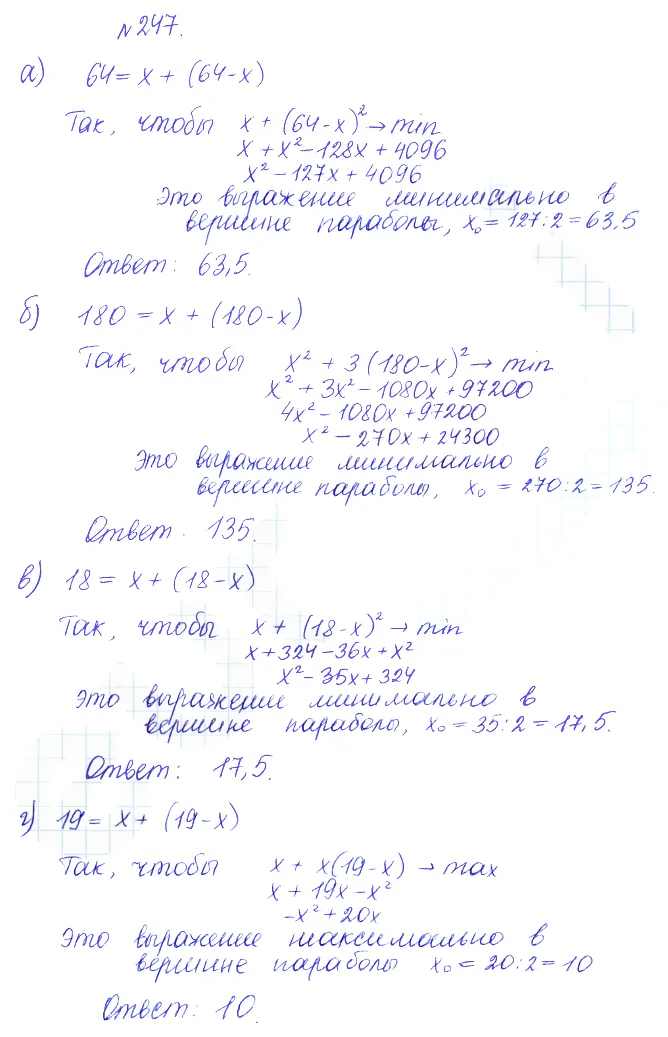 №247.
а) 64 = x + (64-x)
Так, чтобы x + (64-x)² → min
x + x² - 128x + 4096
x² - 127x + 4096
Это выражение минимально в
вершине параболы, x₀ = 127:2 = 63,5
Ответ: 63,5.
б) 180 = x + (180-x)
Так, чтобы x² + 3(180-x)² → min
x² + 3x² - 1080x + 97200
4x² - 1080x + 97200
x² - 270x + 24300
Это выражение минимально в
вершине параболы, x₀ = 270:2 = 135.
Ответ. 135.
в) 18 = x + (18-x)
Так, чтобы x + (18-x)² → min
x + 324 - 36x + x²
x² - 35x + 324
Это выражение минимально в
вершине параболы, x₀ = 35:2 = 17,5.
Ответ: 17,5.
г) 19 = x + (19-x)
Так, чтобы x + x(19-x) → max
x + 19x - x²
-x² + 20x
Это выражение максимально в
вершине параболы x₀ = 20:2 = 10
Ответ: 10.